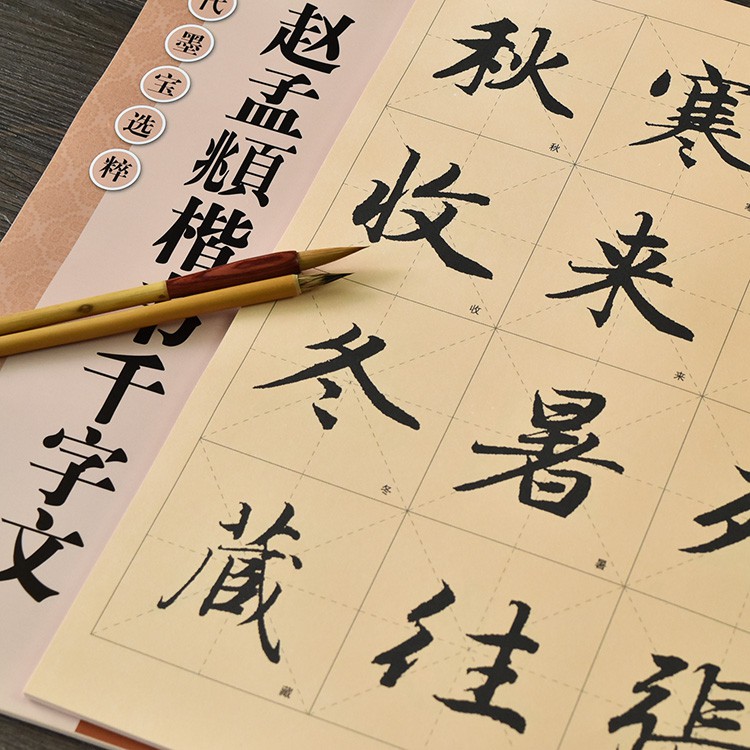 代墨宝选粹
赵孟頫楷书千字文
張
寒来暑往
秋收冬藏
来
暑
秋
收
冬
藏